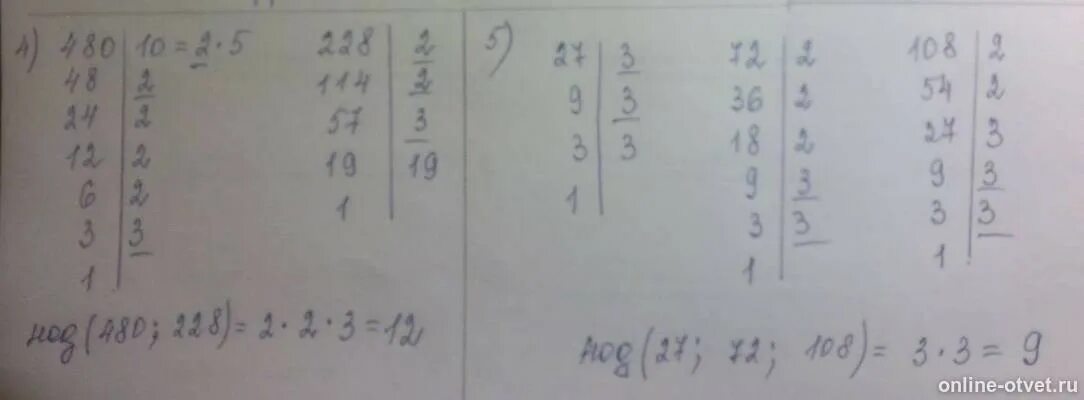 4) 480 | 10 = 2 · 5
48 | 2
24 | 2
12 | 2
6 | 2
3 | 3
1
228 | 2
114 | 2
57 | 3
19 | 19
1
нод(480; 228) = 2 · 2 · 3 = 12
5) 27 | 3
9 | 3
3 | 3
1
72 | 2
36 | 2
18 | 2
9 | 3
3 | 3
1
108 | 2
54 | 2
27 | 3
9 | 3
3 | 3
1
нод(27; 72; 108) = 3 · 3 = 9
online-otvet.ru